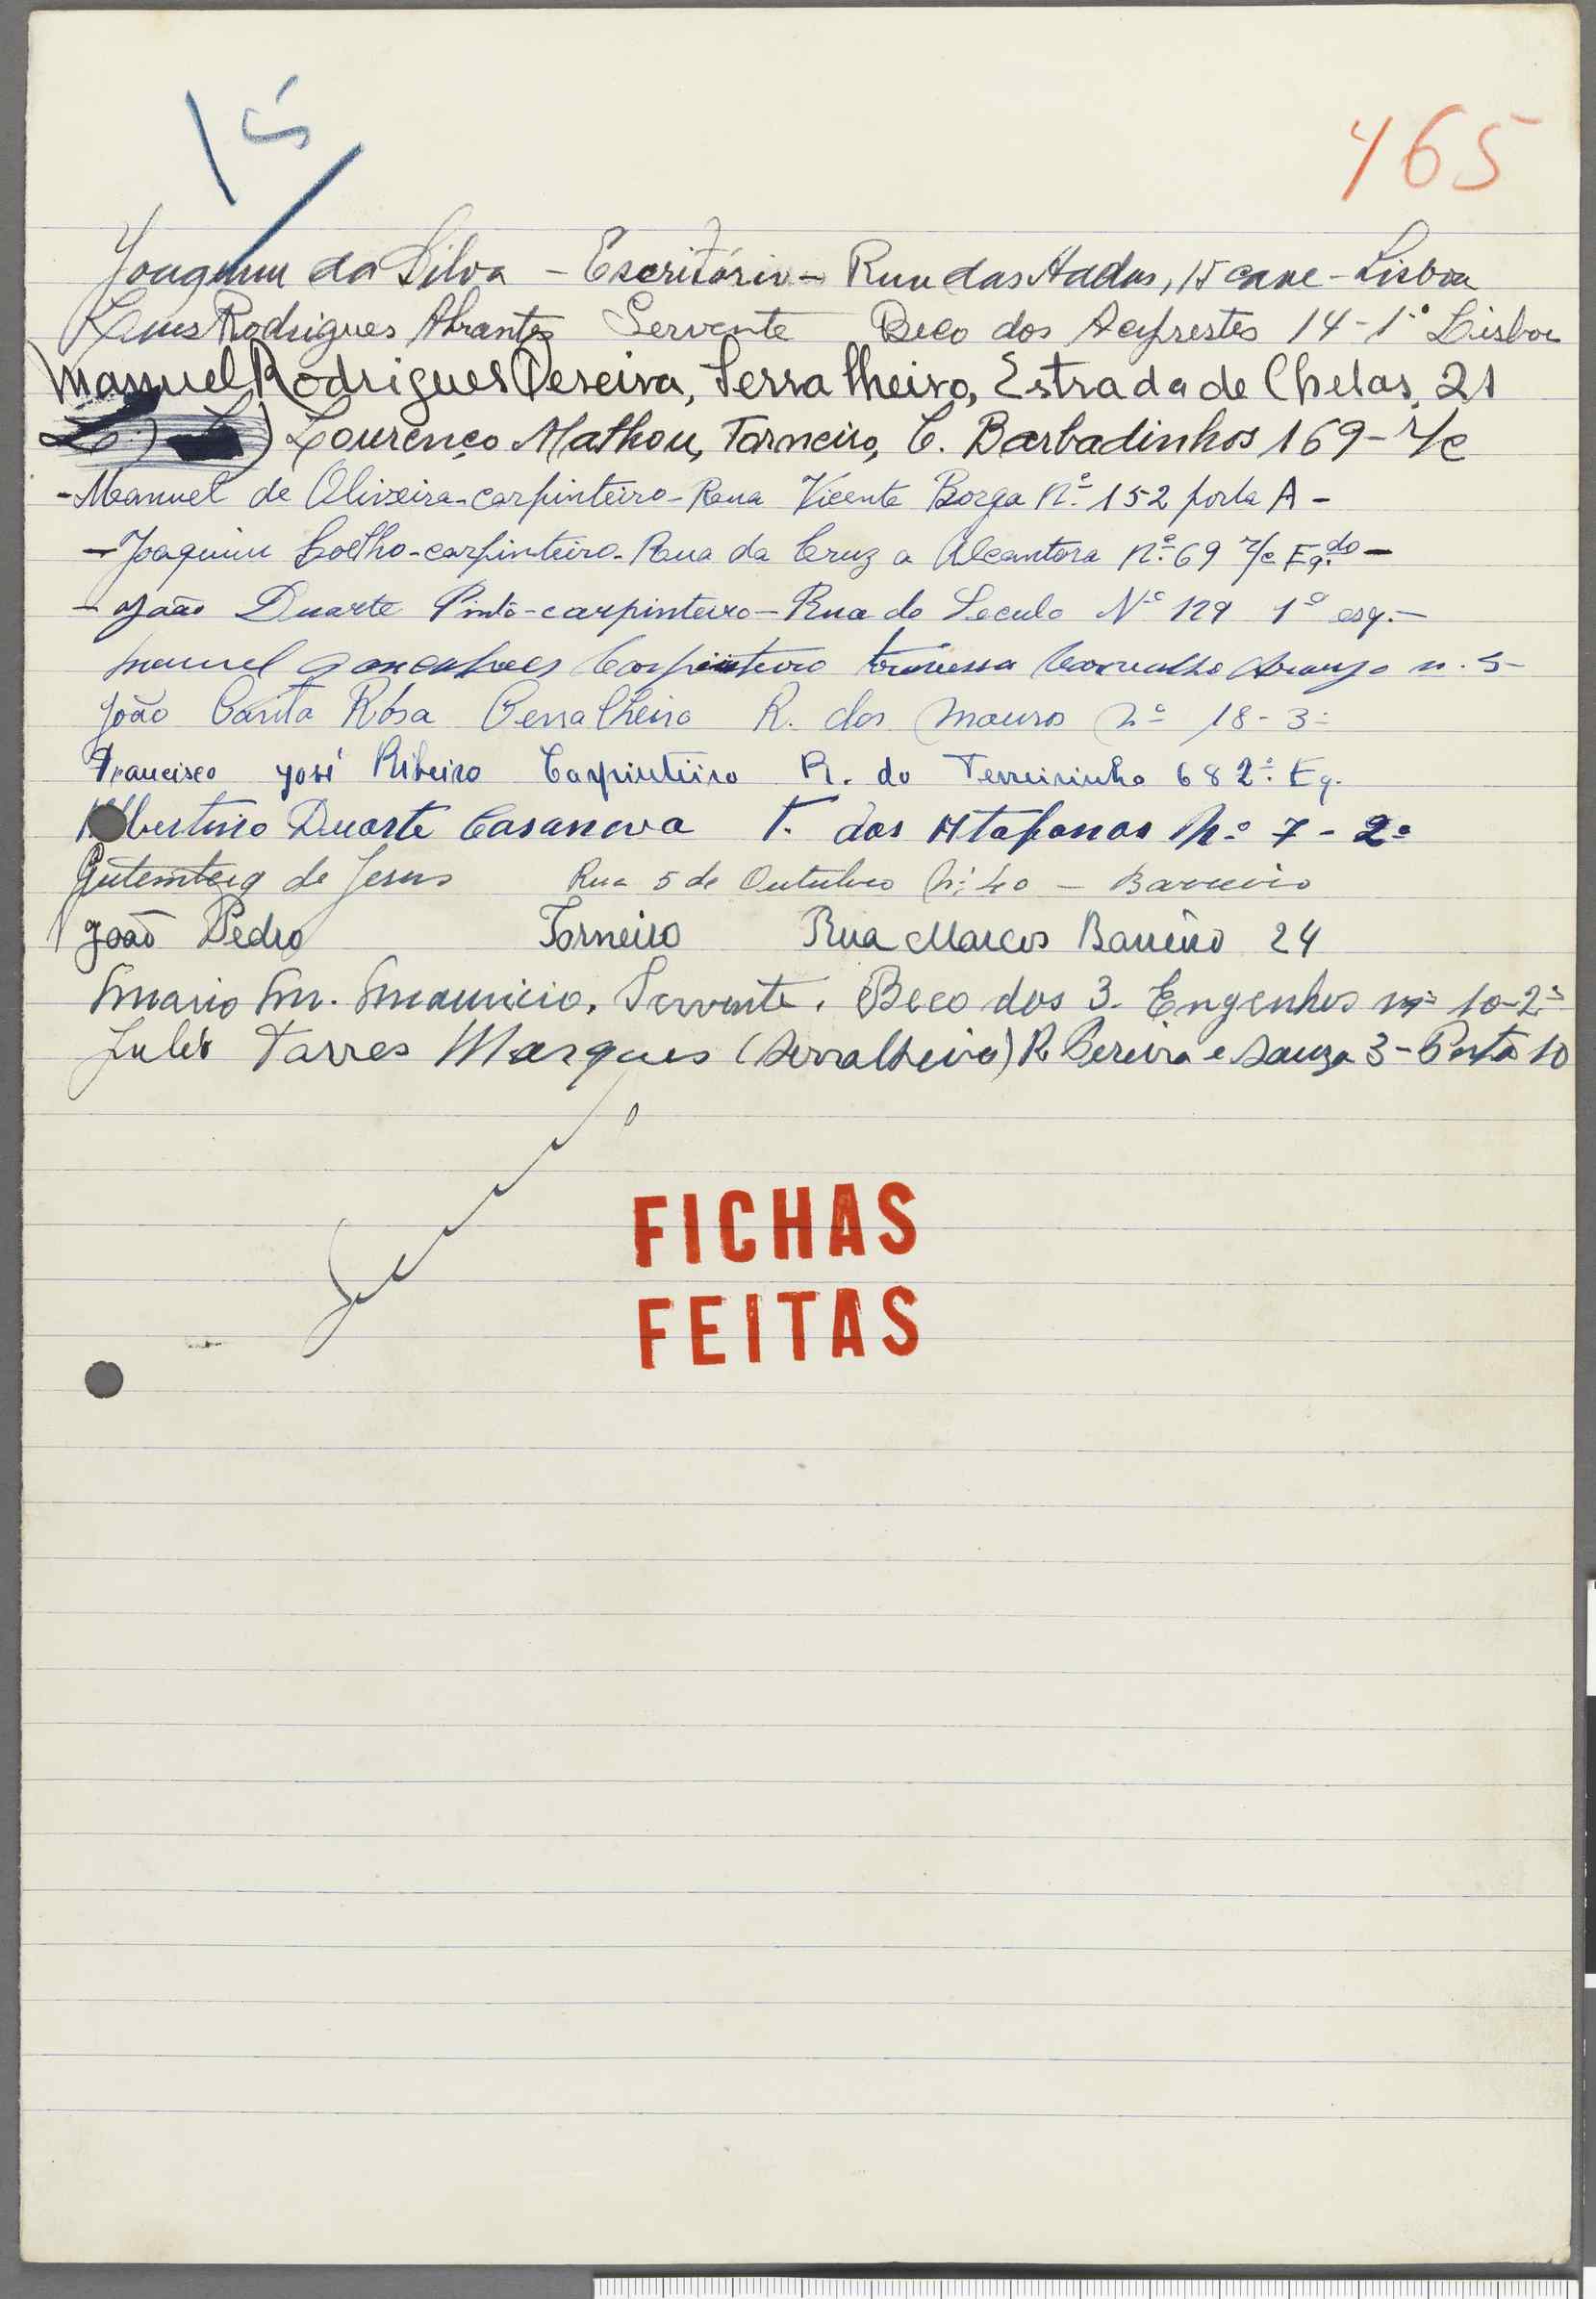 15
465
Joaquim da Silva - Escritório - Rua das Adelas, 15 cave - Lisboa
Rodrigues Abrantes Servente Beco dos 14-1º Lisboa
Manuel Rodrigues Pereira, Serralheiro, Estrada de Chelas, 21
Lourenço Mathou, Torneiro, C. Barbadinhos 169-r/c
-Manuel de Oliveira-carpinteiro-Rua Vicente Borga nº 152 porta A-
-Joaquim Coelho-carpinteiro-Rua da Cruz a Alcantara nº 69 r/c Eq.do-
-João Duarte Pinto-carpinteiro-Rua do Seculo Nº 129 1º esq.-
Manuel Gonçalves Carpinteiro travessa Carvalho Araujo n. 5-
João Santa Rósa Serralheiro R. dos Mouros nº 18-3º
Francisco José Ribeiro Carpinteiro R. do Terreirinho 68 2º Eq.
Albertino Duarte Casanova T. das Atafonas Nº 7-2º
Gutemberg de Jesus Rua 5 de Outubro Nº 40 - Barreiro
João Pedro Torneiro Rua Marcos Barreiro 24
Mario M. Mauricio. Servente. Beco dos 3. Engenhos nº 10-2º
Julio Tarres Marques (serralheiro) R Pereira e Sousa 3-Porta 10
FICHAS
FEITAS